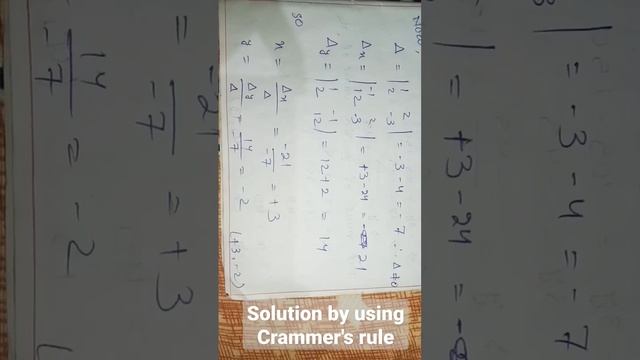 Now,
Δ = | 1 2 |
| 2 -3 | = -3 - 4 = -7 ∴ Δ ≠ 0
Δx = | -1 2 |
| 12 -3 | = +3 - 24 = -21
Δy = | 1 -1 |
| 2 12 | = 12 + 2 = 14
so
x = Δx / Δ = -21 / -7 = +3
y = Δy / Δ = 14 / -7 = -2 (+3, -2)
Solution by using
Crammer's rule